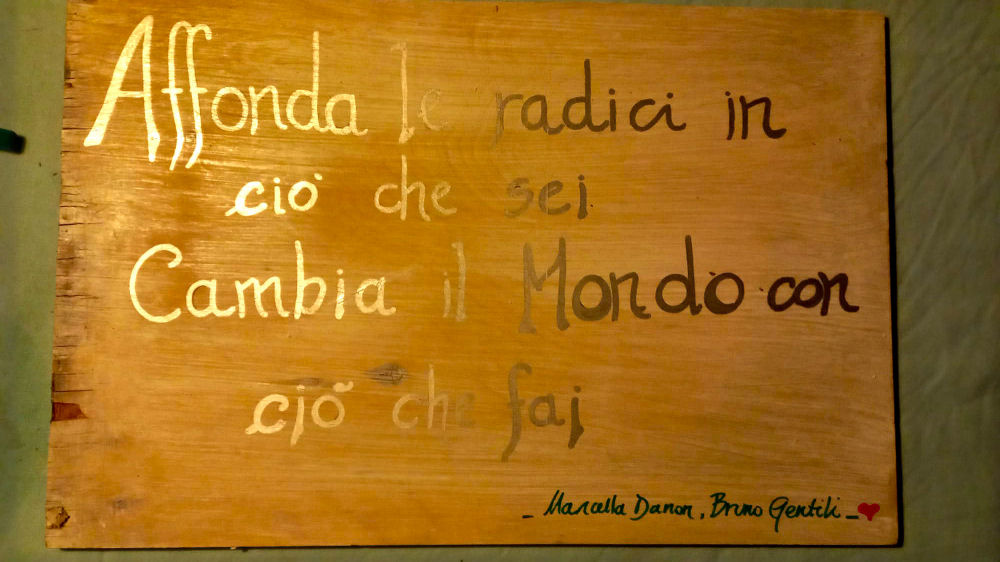 Affonda le radici in
ciò che sei
Cambia il Mondo con
ciò che fai
- Marcella Danon, Bruno Gentili - ❤